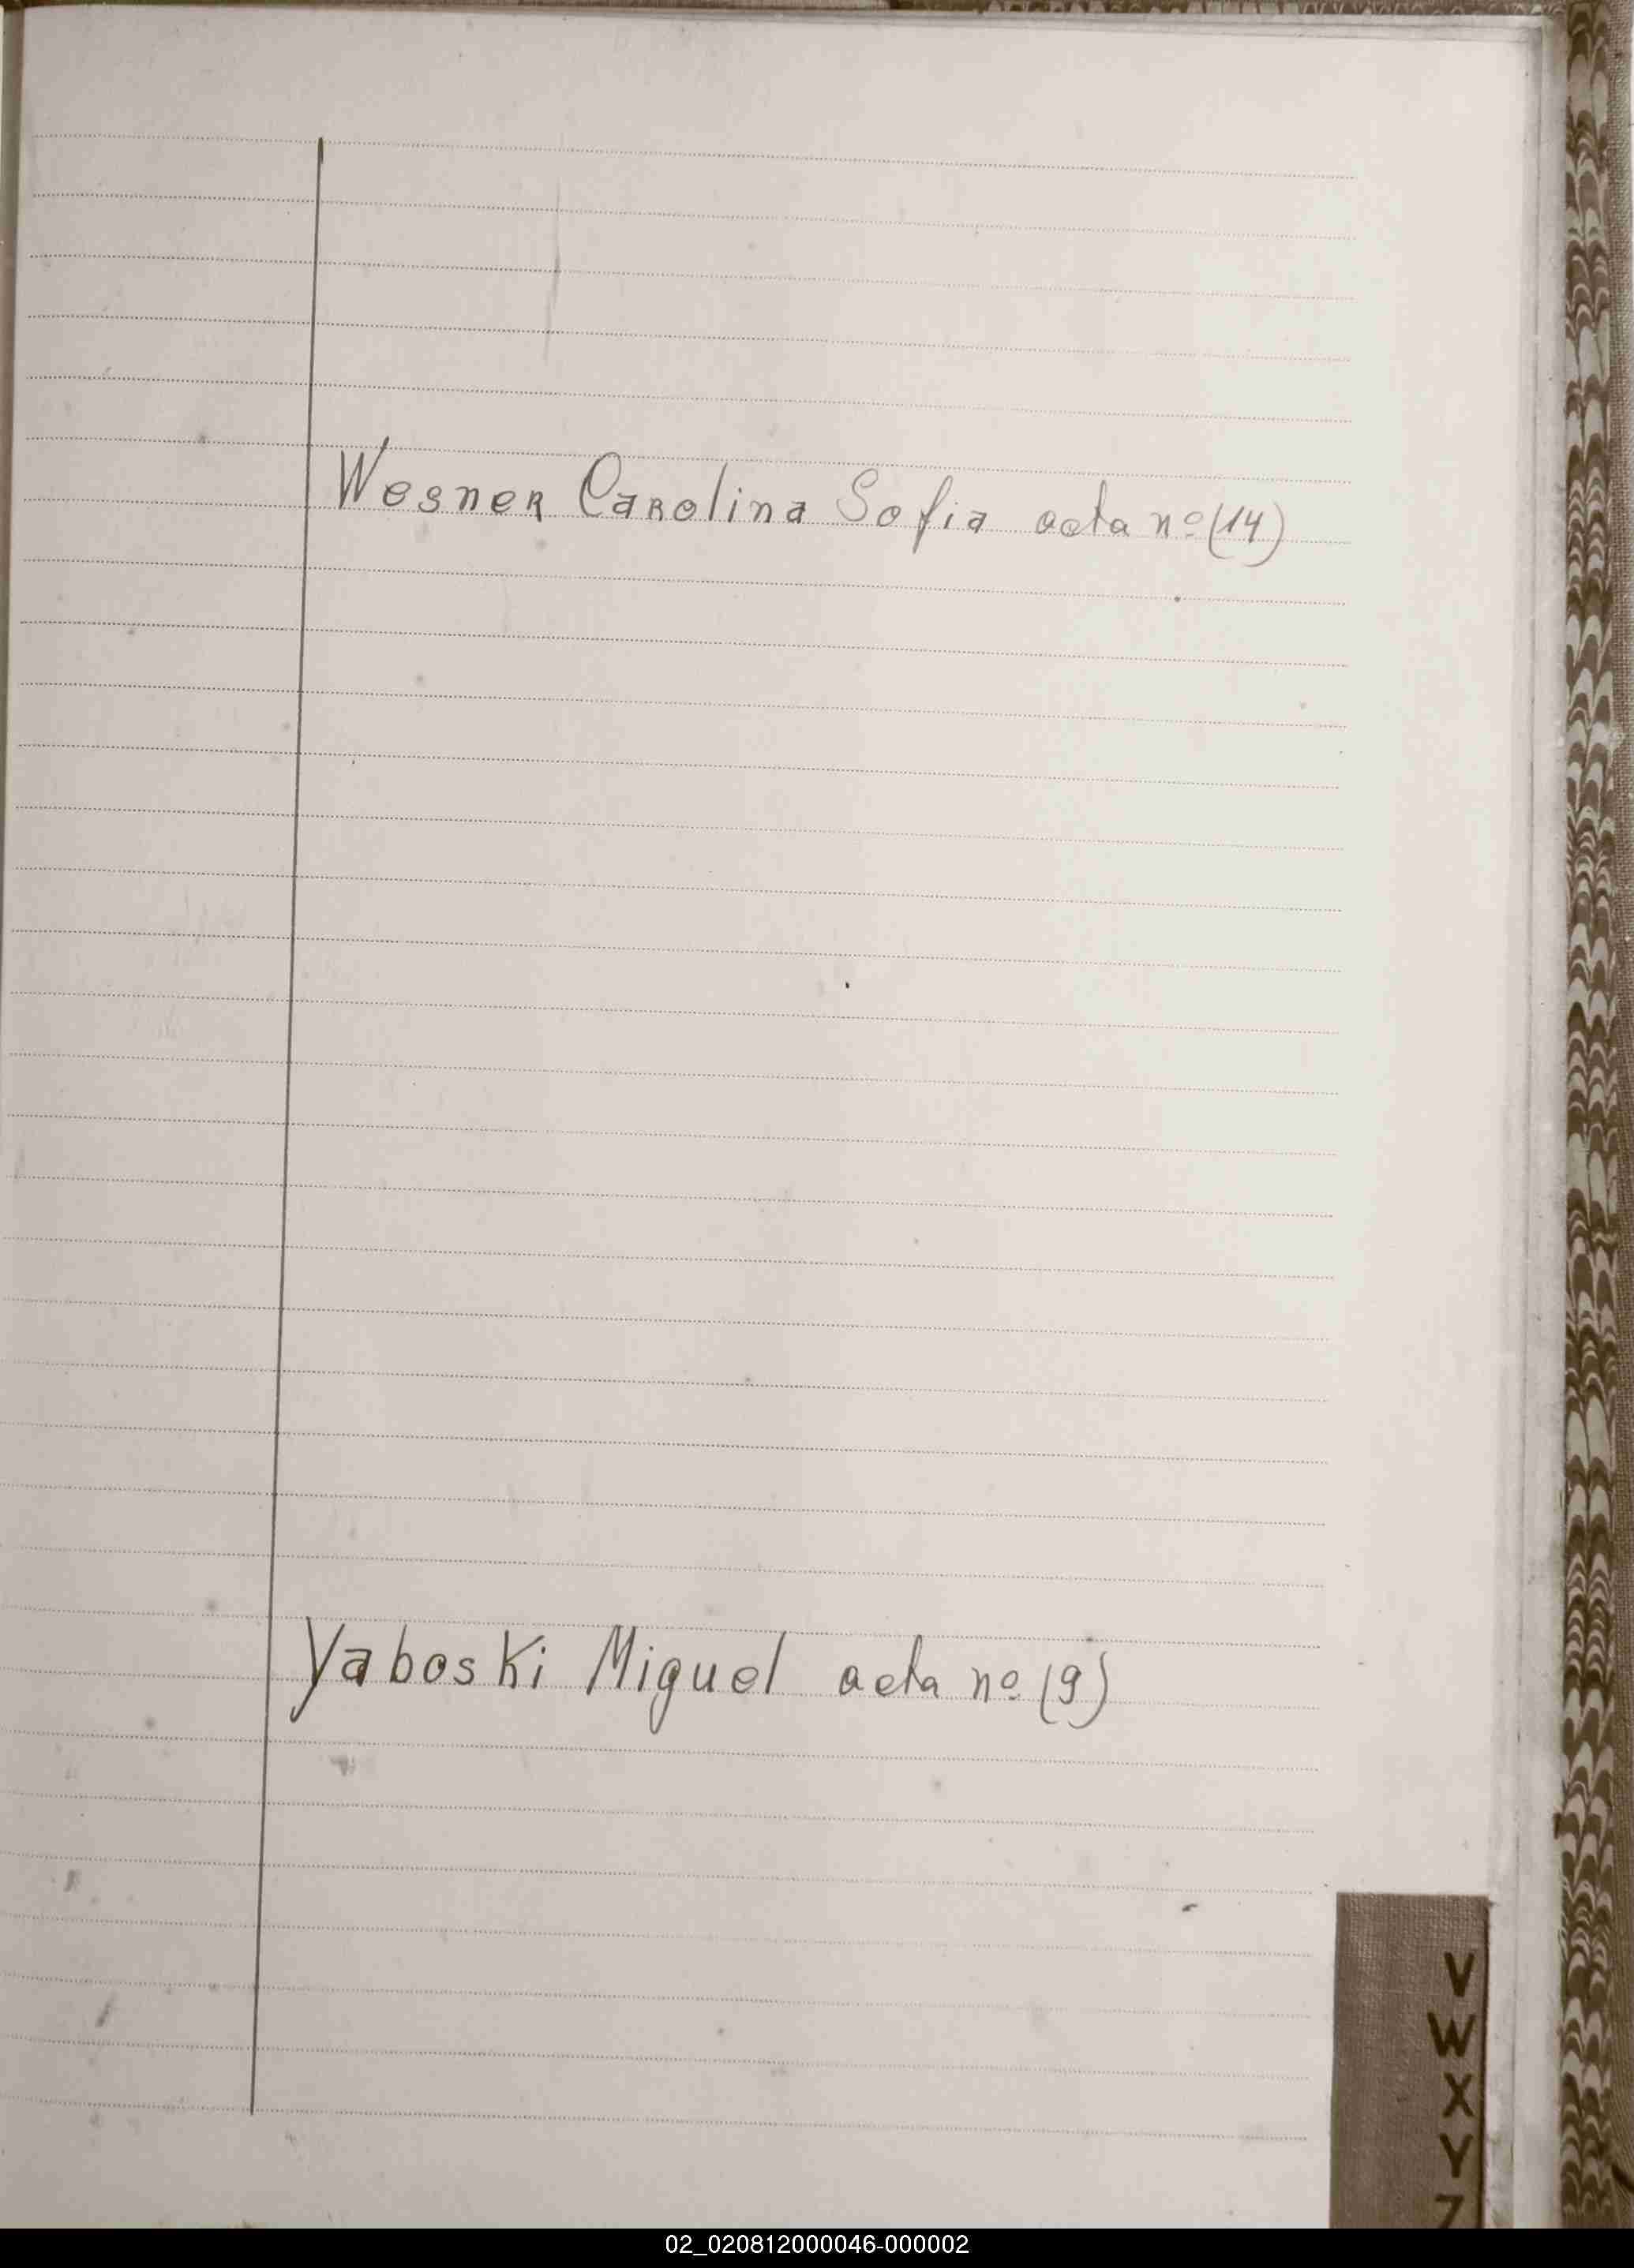 Wesner Carolina Sofia acta nº (14)
Yaboski Miguel acta nº (9)
V
W
X
Y
Z
02_020812000046-000002